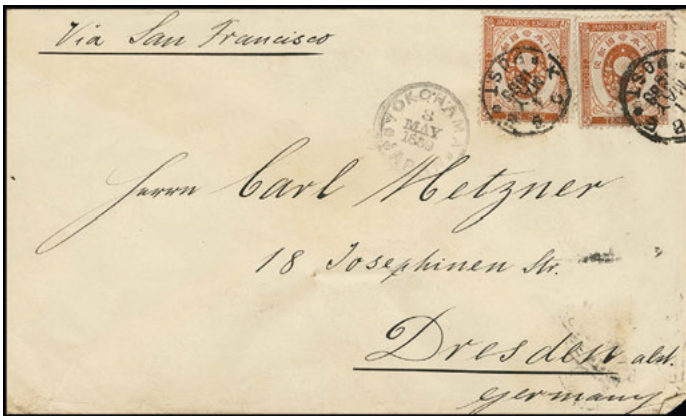 Via San Francisco
JAPANESE EMPIRE
JAPANESE EMPIRE
YOKOHAMA
3
MAY
1889
JAPAN
Herrn Carl Metzner
18 Josephinen Str.
Dresden
Germany